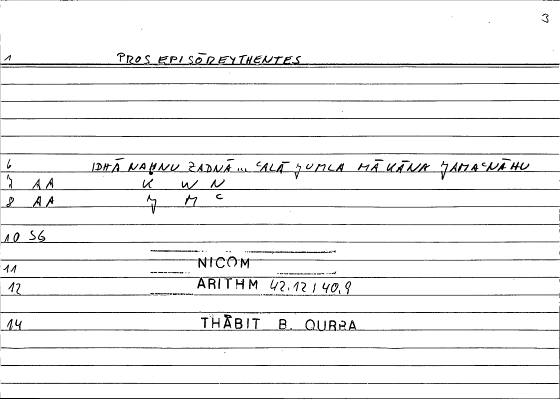 3
1 PROS EPISŌREYTHENTES
6 IDHĀ NAḤNU ZADNĀ... ʿALĀ ǧUMLA MĀ KĀNA ǦAMAʿNĀHU
7 AA K W N
8 AA Ǧ M ʿ
10 56
11 NICOM
12 ARITHM 42.12 / 40.9
14 THĀBIT B. QURRA